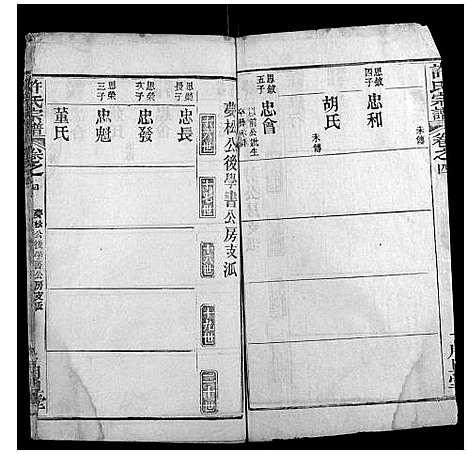 許氏宗譜
卷之四
思敏四子
忠和
未傳
胡氏
思敏五子
忠會
未傳
夢松公後學書公房支派
十六世
十七世
十八世
十九世
二十世
思榮長子
忠長
思榮次子
忠發
思榮三子
忠魁
董氏
許氏宗譜
卷之四
夢松公後學書公房支派